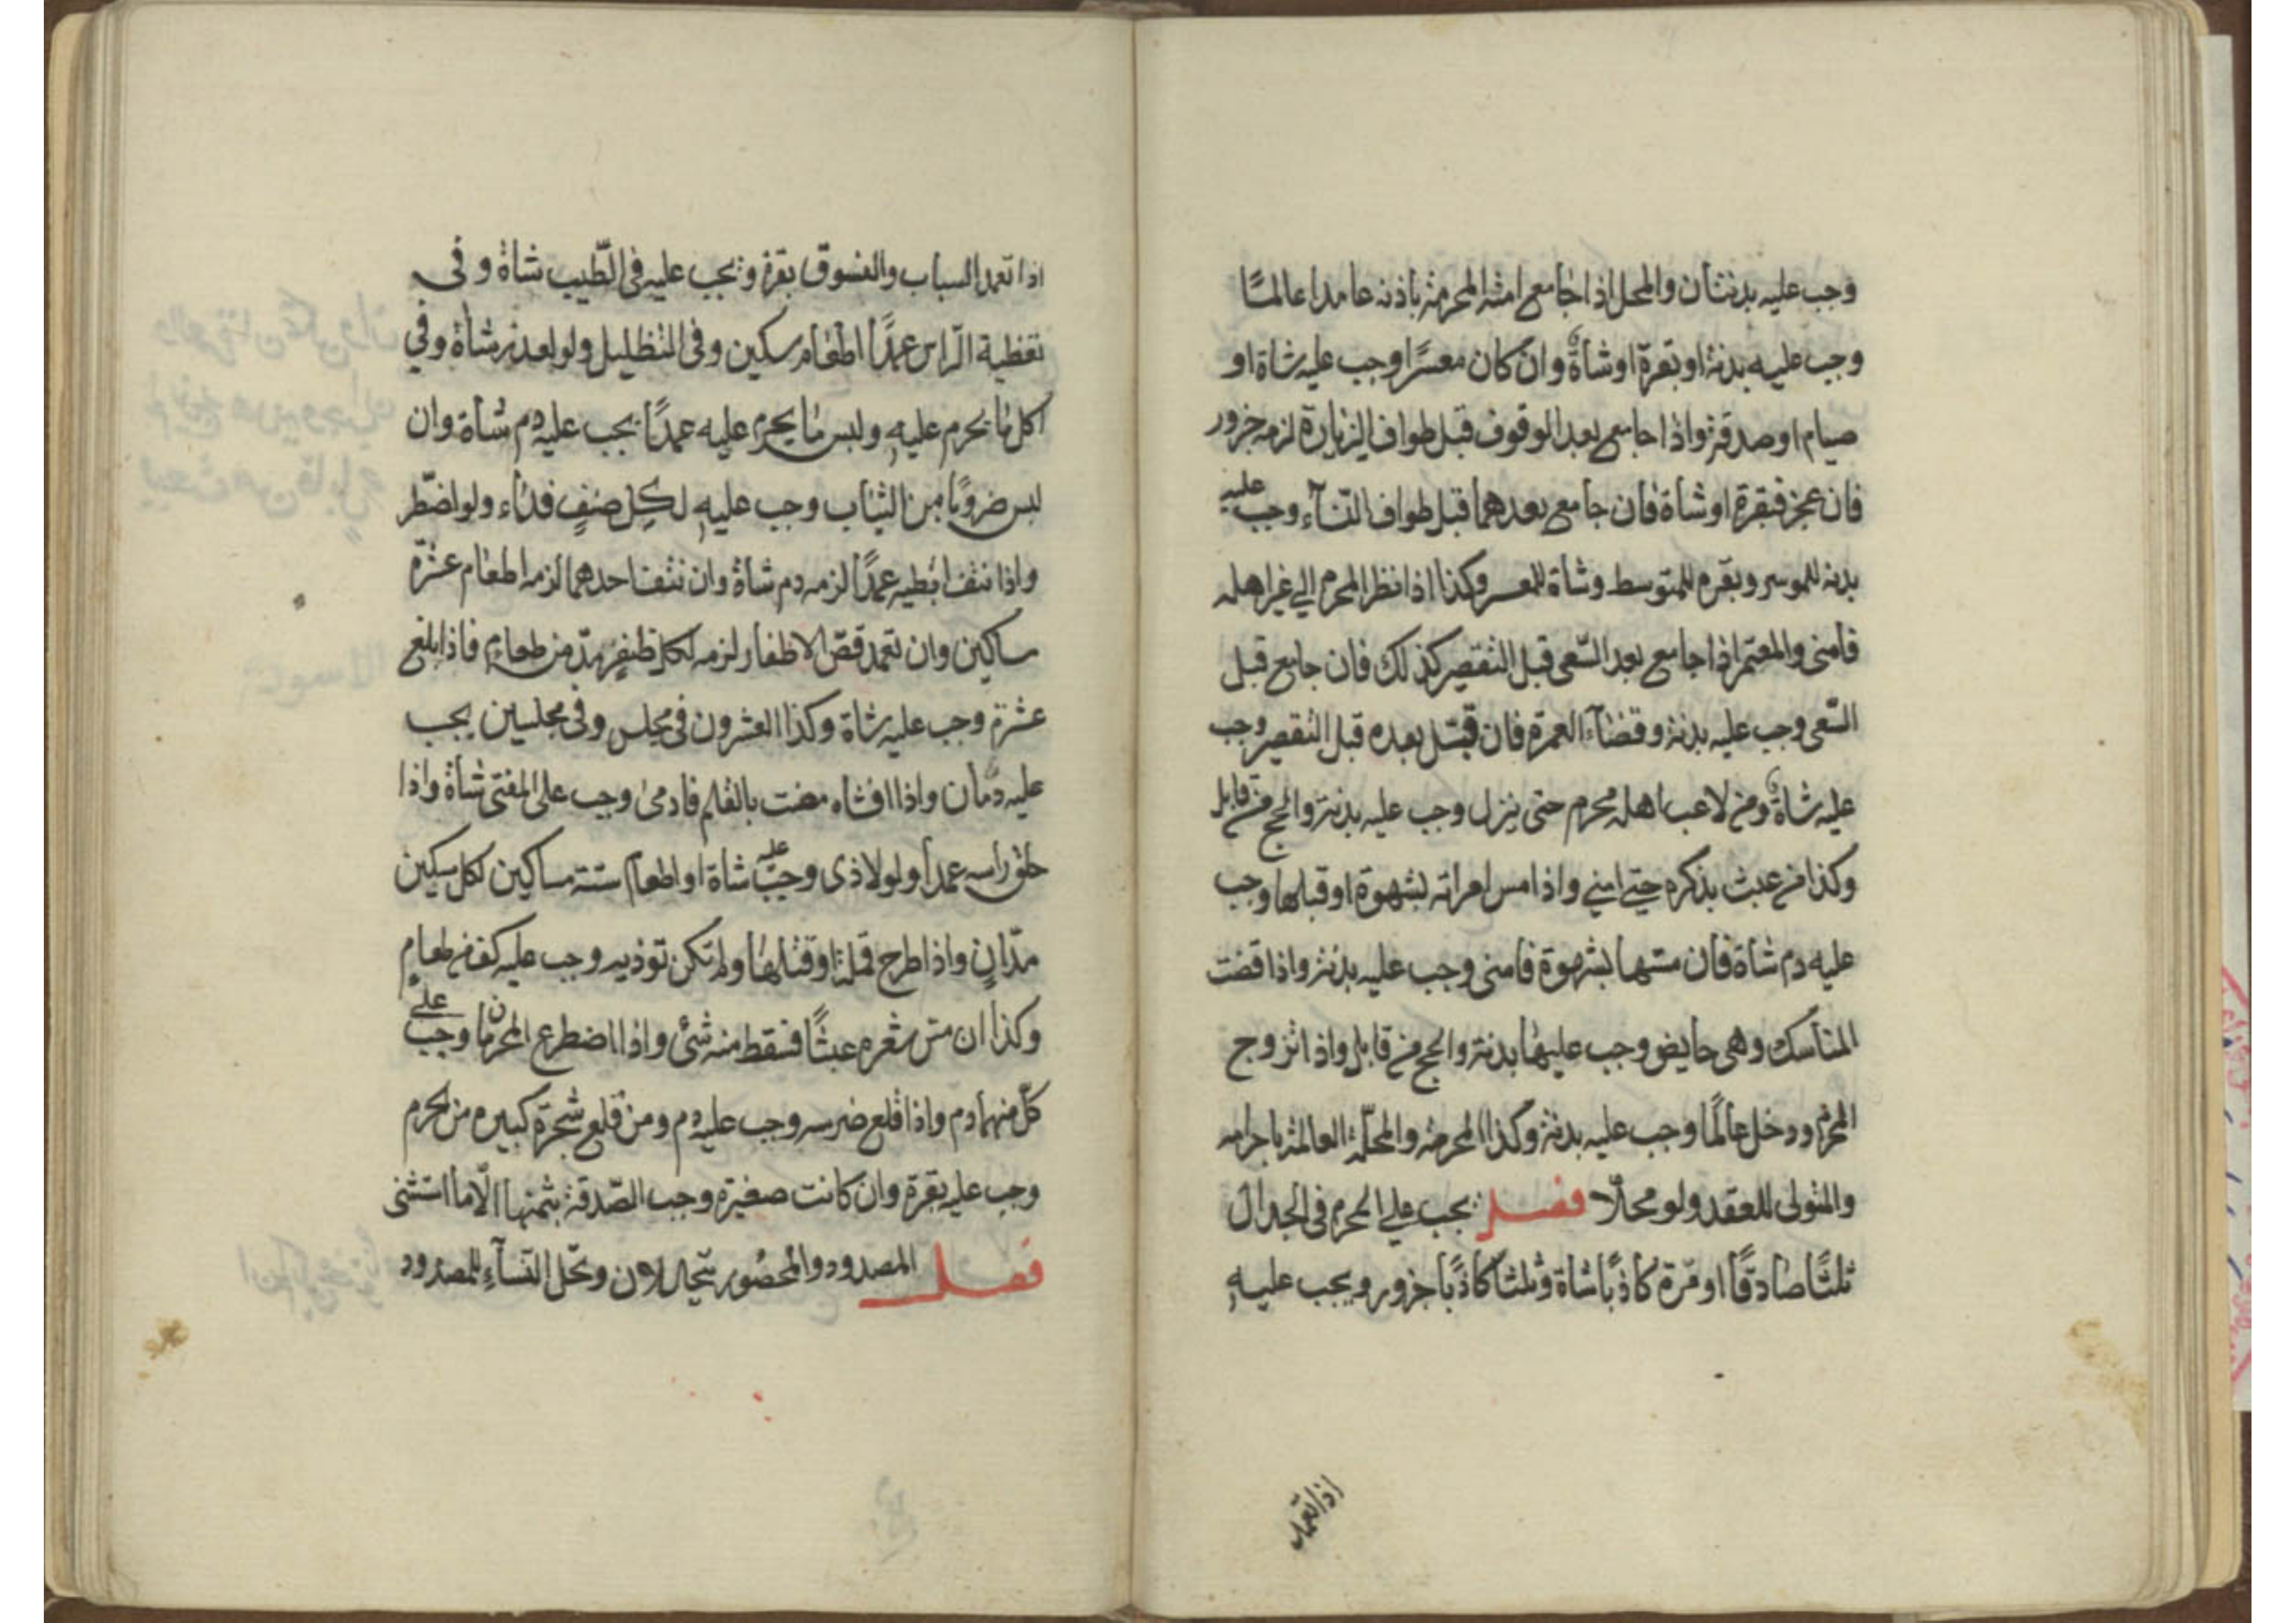 وجب عليه بدنتان والمحل اذا جامع امته المحرمة باذنه عامدا عالمًا
وجب عليه بدنة او بقرة او شاة وان كان معسرًا وجب عليه شاة او
صيام او صدقة واذا جامع بعد الوقوف قبل طواف الزيارة لزمه جزور
فان عجز فبقرة او شاة فان جامع بعدهما قبل طواف النسآء وجب عليه
بدنه للموسر وبقره للمتوسط وشاة للمعسر وكذا اذا نظر المحرم الي غير اهله
فامنى والمعتمر اذا جامع بعد السّعى قبل التقصير كذلك فان جامع قبل
السّعى وجب عليه بدنة وقضآء العمرة فان قبّل بعده قبل التقصير وجب
عليه شاة ومن لاعب اهله محرم حتى ينزل وجب عليه بدنة والحج من قابل
وكذا من عبث بذكره حتي امني واذا مس امراته بشهوة او قبلها وجب
عليه دم شاة فان مسّها بشهوة فامنى وجب عليه بدنة واذا قضت
المناسك وهى حايض وجب عليها بدنة والحج من قابل واذا تزوج
المحرم ودخل عالمًا وجب عليه بدنة وكذا المحرمة والمحلّة العالمة باحرامه
والمتولى للعقد ولو محلًا فصل يجب علي المحرم فى الجدال
ثلثًا صادقًا او مّرة كاذبًا شاة وثلثا كاذبًا جزور ويجب عليه
اذا تعمد
اذا تعمد السباب والفسوق بقرة ويجب عليه فى الطّيب شاة وفى
تغطية الرّاس عمدًا اطعام مسكين وفى التظليل ولو لعذر شاة وفي
اكل ما يحرم عليه ولبس ما يحرم عليه عمدًا يجب عليه دم شاة وان
لبس ضروبًا من الثياب وجب عليه لكل صنفٍ فداء ولو اضّطر
واذا نتف ابطيه عمدًا لزمه دم شاة وان نتف احدهما لزمه اطعام عشرة
مساكين وان تعمد قصّ الاظفار لزمه لكل ظفرٍ مدّ من طعامٍ فاذا بلغ
عشرة وجب عليه شاة وكذا العشرون فى مجلس وفى مجلسين يجب
عليه دمان واذا افتاه مفت بالقلم فادمى وجب على المفتى شاة واذا
حلق راسه عمدا ولو لاذى وجب عليه شاة او اطعام ستة مساكين لكل مسكين
مدّان واذا طرح قملة او قتلها ولم تكن توذيه وجب عليه كف من طعام
وكذا ان مس شعره عبثًا فسقط منه شئ واذا اضطرع المحرمان وجب علي
كلّ منهما دم واذا قلع ضرسه وجب عليه دم ومن قلع شجرة كبيره من الحرم
وجب عليه بقرة وان كانت صغيرة وجب الصّدقة بثمنها الّا ما استثنى
فصل المصدود والمحصور يتحللان وتحّل النسآء للمصدود